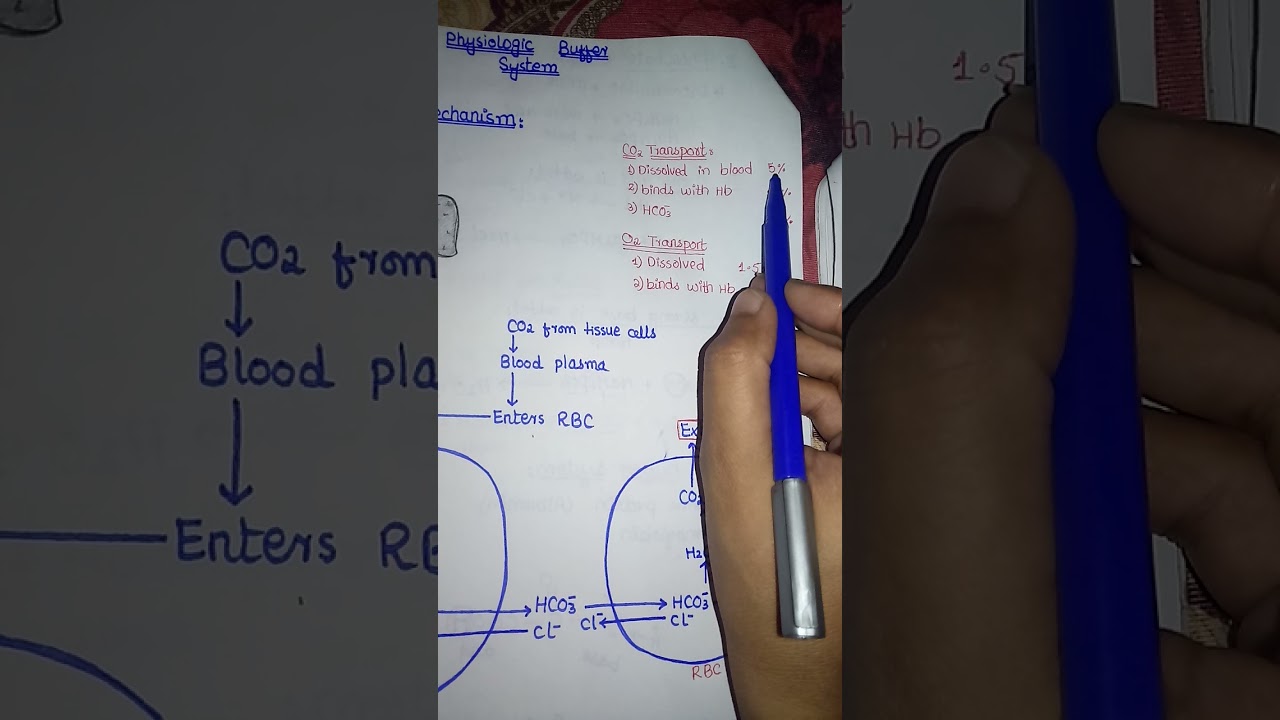 Physiologic Buffer
System
echanism:
CO2 Transport:
1) Dissolved in blood 5%
2) binds with Hb %
3) HCO3- %
O2 Transport
1) Dissolved 1.5
2) binds with Hb
CO2 from tissue cells
↓
Blood plasma
↓
Enters RBC
Ex
CO2
H2
HCO3- → HCO3-
Cl- Cl- ← Cl-
RBC